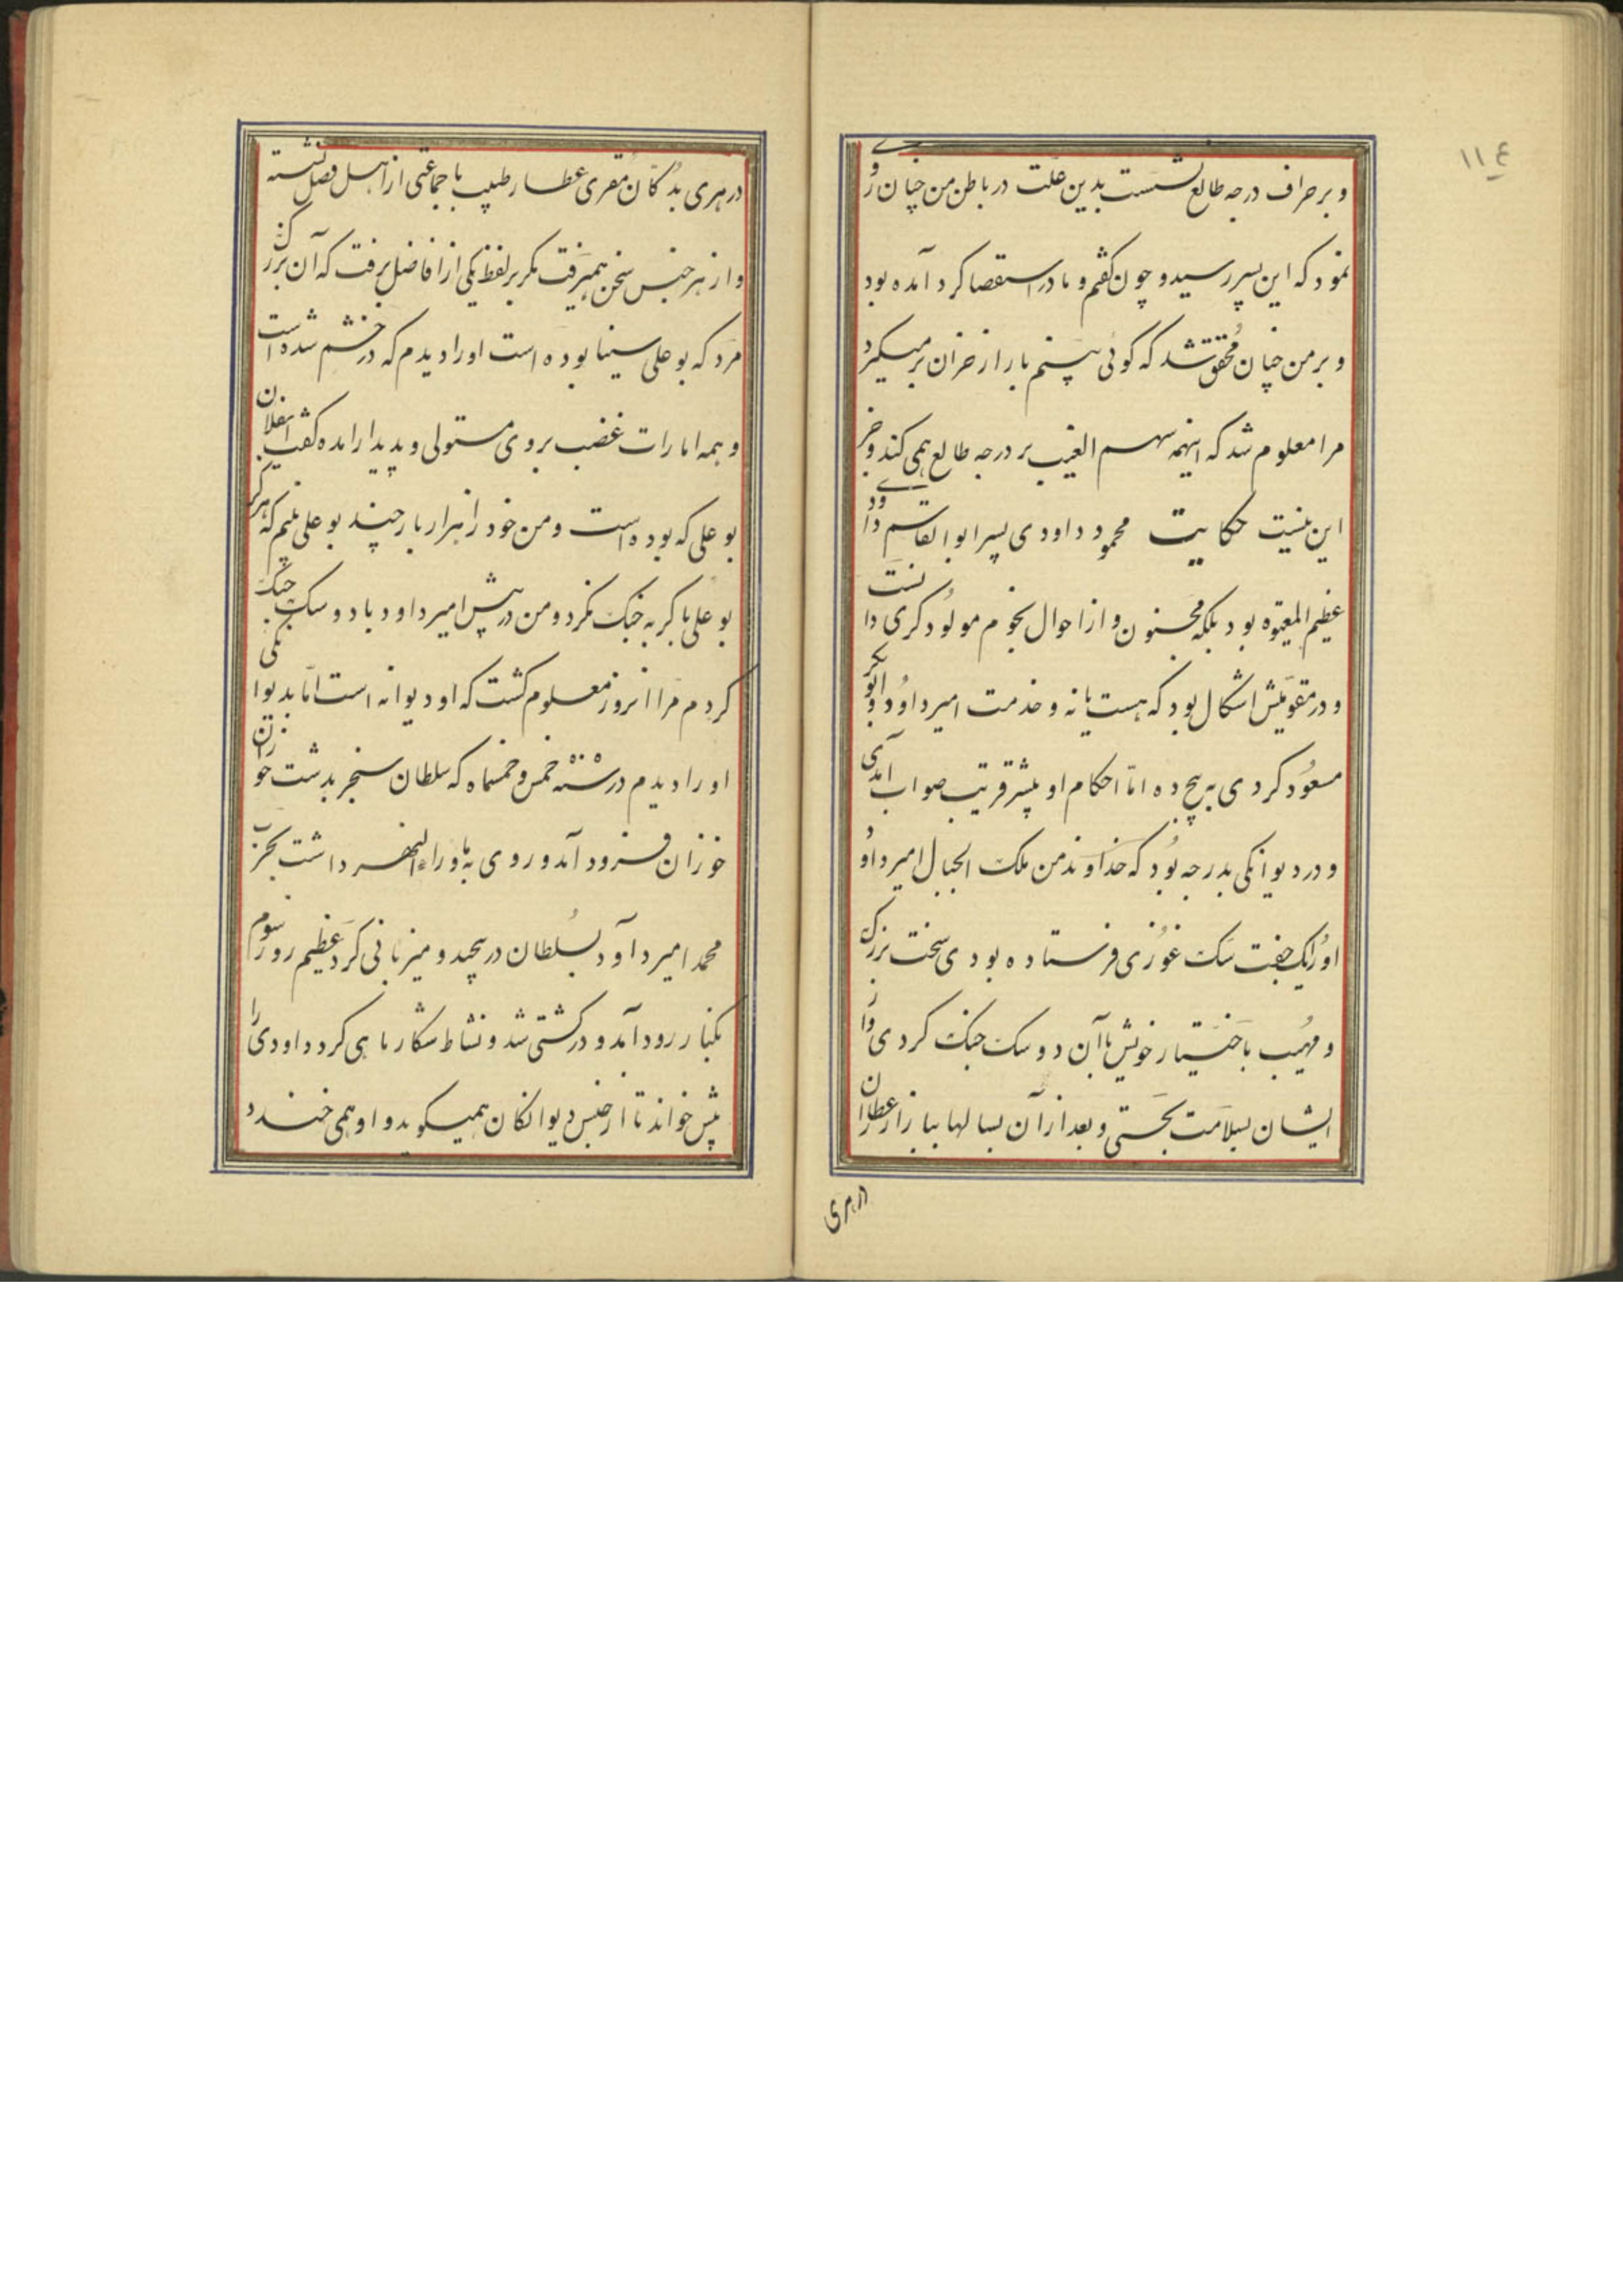 ۱۱۴
و بر جزاف درجه طالع نشست بدین علت در باطن من چنان روی
نمود که این پسر رسید و چون بگفتم و مادر استقصا کرد آمده بود
و بر من چنان محقق شد که گوئی می‌بینم بار از خران بر میگیرد
مرا معلوم شد که اینهمه سهم الغیب بر درجه طالع همی کند و جز
این نیست حکایت محمود داودی پسر ابو القاسم داودی
عظیم المعتوه بود بلکه مجنون و از احوال نجوم مولود گری دانست
و در مقومیش اشکال بود که هست یا نه و خدمت امیر داود ابو بکر
مسعود کردی به پنج ده اما احکام او بیشتر قریب صواب آمدی
و در دیوانگی بدرجه بود که خداوند من ملک الجبال امیر داود
او را یک جفت سگ غوری فرستاده بودی سخت بزرگ
و مهیب باختیار خویش با آن دو سگ جنگ کردی و از
ایشان بسلامت بجستی و بعد از آن بسالها ببازار عطاران
در هری
در هری بدکان مقری عطار طبیب با جماعتی از اهل فضل نشسته
و از هر جنس سخن همیرفت مگر بر لفظ یکی از افاضل برفت که آن بزرگ
مرد که بو علی سینا بوده است او را دیدم که در خشم شده است
و همه امارات غضب بر وی مستولی و پدیدار امده گفت ایفلان
بو علی که بوده است و من خود را هزار بار چند بو علی بینم که هرگز
بو علی با گربه جنگ نکرد و من در پیش امیر داود با دو سگ جنگ
کردم مرا انروز معلوم گشت که او دیوانه است اما بدیوانگی
او را دیدم در سنه خمس و خمسماه که سلطان سنجر بدشت خوزان
خوزان فرود آمد و روی به ماوراء النهر داشت بحرب
محمد امیر داود بسلطان در پیچید و میزبانی کرد عظیم روز سوم
بکنار رود آمد و در کشتی شد و نشاط شکار ماهی کرد داودی را
پیش خواند تا از جنس دیوانکان همیگوید و او همی خندد